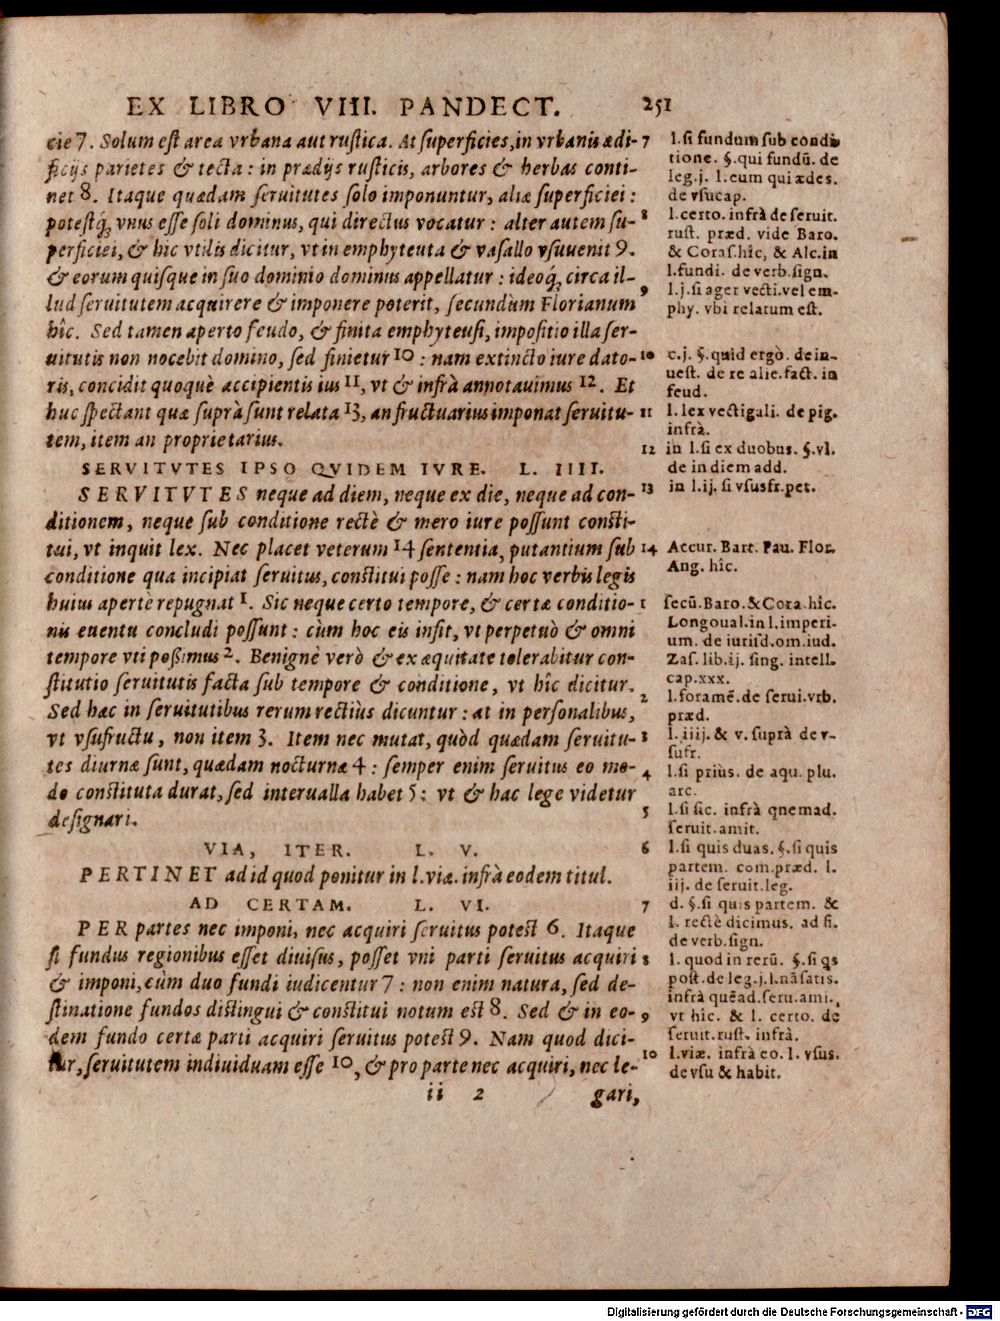 EX LIBRO VIII. PANDECT. 251
cie 7. Solum est area vrbana aut rustica. At superficies, in vrbanis ædi-
ficijs parietes & tecta: in prædijs rusticis, arbores & herbas conti-
net 8. Itaque quædam seruitutes solo imponuntur, aliæ superficiei:
potestq́ꝫ vnus esse soli dominus, qui directus vocatur: alter autem su-
perficiei, & hic vtilis dicitur, vt in emphyteuta & vasallo vsuuenit 9.
& eorum quisque in suo dominio dominus appellatur: ideoq́ꝫ circa il-
lud seruitutem acquirere & imponere poterit, secundùm Florianum
hîc. Sed tamen aperto feudo, & finita emphyteusi, impositio illa ser-
uitutis non nocebit domino, sed finietur 10: nam extincto iure dato-
ris, concidit quoquè accipientis ius 11, vt & infrà annotauimus 12. Et
huc spectant quæ suprà sunt relata 13, an fructuarius imponat seruitu-
tem, item an proprietarius.
SERVITVTES IPSO QVIDEM IVRE. L. IIII.
SERVITVTES neque ad diem, neque ex die, neque ad con-
ditionem, neque sub conditione rectè & mero iure possunt consti-
tui, vt inquit lex. Nec placet veterum 14 sententia, putantium sub
conditione qua incipiat seruitus, constitui posse: nam hoc verbis legis
huius apertè repugnat 1. Sic neque certo tempore, & certæ conditio-
nis euentu concludi possunt: cùm hoc eis insit, vt perpetuò & omni
tempore vti poßimus 2. Benignè verò & ex æquitate tolerabitur con-
stitutio seruitutis facta sub tempore & conditione, vt hîc dicitur.
Sed hæc in seruitutibus rerum rectiùs dicuntur: at in personalibus,
vt vsufructu, non item 3. Item nec mutat, quòd quædam seruitu-
tes diurnæ sunt, quædam nocturnæ 4: semper enim seruitus eo mo-
do constituta durat, sed interualla habet 5: vt & hac lege videtur
designari.
VIA, ITER. L. V.
PERTINET ad id quod ponitur in l. viæ. infrà eodem titul.
AD CERTAM. L. VI.
PER partes nec imponi, nec acquiri seruitus potest 6. Itaque
si fundus regionibus esset diuisus, posset vni parti seruitus acquiri
& imponi, cùm duo fundi iudicentur 7: non enim natura, sed de-
stinatione fundos distingui & constitui notum est 8. Sed & in eo-
dem fundo certæ parti acquiri seruitus potest 9. Nam quod dici-
tur, seruitutem indiuiduam esse 10, & pro parte nec acquiri, nec le-
ii 2 gari,
7 l. si fundum sub condi-
tione. §. qui fundū. de
leg. j. l. eum qui ædes.
de vsucap.
8 l. certo. infrà de seruit.
rust. præd. vide Baro.
& Coras. hîc, & Alc. in
l. fundi. de verb. sign.
9 l. j. si ager vecti. vel em-
phy. vbi relatum est.
10 c. j. §. quid ergò. de in-
uest. de re alie. fact. in
feud.
11 l. lex vectigali. de pig.
infrà.
12 in l. si ex duobus. §. vl.
de in diem add.
13 in l. ij. si vsusfr. pet.
14 Accur. Bart. Pau. Flor.
Ang. hîc.
1 secū. Baro. & Cora. hîc.
Longoual. in l. imperi-
um. de iurisd. om. iud.
Zas. lib. ij. sing. intell.
cap. xxx.
2 l. foramē. de serui. vrb.
præd.
3 l. iiij. & v. suprà de v-
sufr.
4 l. si priùs. de aqu. plu.
arc.
5 l. si sic. infrà quemad.
seruit. amit.
6 l. si quis duas. §. si quis
partem. com. præd. l.
iij. de seruit. leg.
7 d. §. si quis partem. &
l. rectè dicimus. ad fi.
de verb. sign.
8 l. quod in rerū. §. si qs
post. de leg. j. l. nā satis.
infrà quēad. seru. ami.
9 vt hîc. & l. certo. de
seruit. rust. infrà.
10 l. viæ. infrà eo. l. vsus.
de vsu & habit.
Digitalisierung gefördert durch die Deutsche Forschungsgemeinschaft - DFG